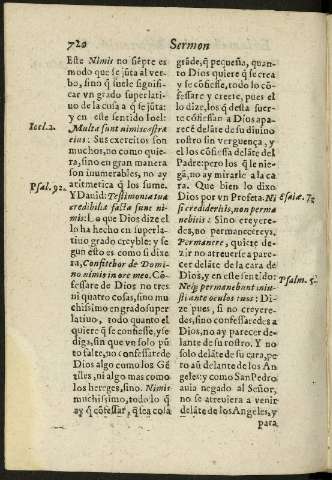 720
Sermon
Este Nimis no siẽpre es
modo que se jũta al ver-
bo, sino q̃ suele signifi-
car vn grado superlati-
uo de la cosa a q̃ se jũta:
y en este sentido Ioel:
Ioel.2.
Multa sunt nimis castra
eius: Sus exercitos son
muchos, no como quie-
ra, sino en gran manera
son inumerables, no ay
aritmetica q̃ los sume.
Psal. 92.
Y Dauid: Testimonia tua
credibilia facta sunt ni-
mis: Lo que Dios dize el
lo ha hecho en superla-
tiuo grado creyble: y se
gun esto es como si dixe
ra, Confitebor de Domi-
no nimis in ore meo. Cõ-
fessare de Dios no tres
ni quatro cosas, sino mu
chissimo en grado super
latiuo, todo quanto el
quiere q̃ se confiesse, y se
diga, sin que vn solo pũ
to falte, no confessare de
Dios algo como los Gẽ-
tiles, ni algo mas como
los hereges, sino. Nimis
muchissimo, todo lo q̃
ay q̃ cõfessar, q̃ sea cosa
grãde, q̃ pequeña, quan-
to Dios quiere q̃ se crea
y se cõfiesse, todo lo cõ-
fessare y creere, pues el
lo dize, los q̃ desta suer-
te cõfiessan a Dios apare
cẽ delãte de su diuino
rostro sin verguença, y
el los cõfiessa delãte del
Padre: pero los q̃ le nie-
gã, no ay mirarle a la ca
ra. Que bien lo dixo
Dios por vn Profeta: Ni
Esaiæ. 7.
si credideritis, non perma
nebitis: Sino creyere-
des, no permanecereys.
Permanere, quiere de-
zir no atreuerse a pare-
cer delãte de la cara de
Dios, y en este sentido:
Psalm. 5.
Neq̃; permanebunt iniu-
sti ante oculos tuos: Di-
ze pues, si no creyere-
des, sino confessaredes a
Dios, no ay parecer de-
lante de su rostro. Y no
solo delãte de su cara, pe-
ro aũ delante de los An-
geles: y como San Pedro
auia negado al Señor,
no se atreuiera a venir
delãte de los Angeles, y
para